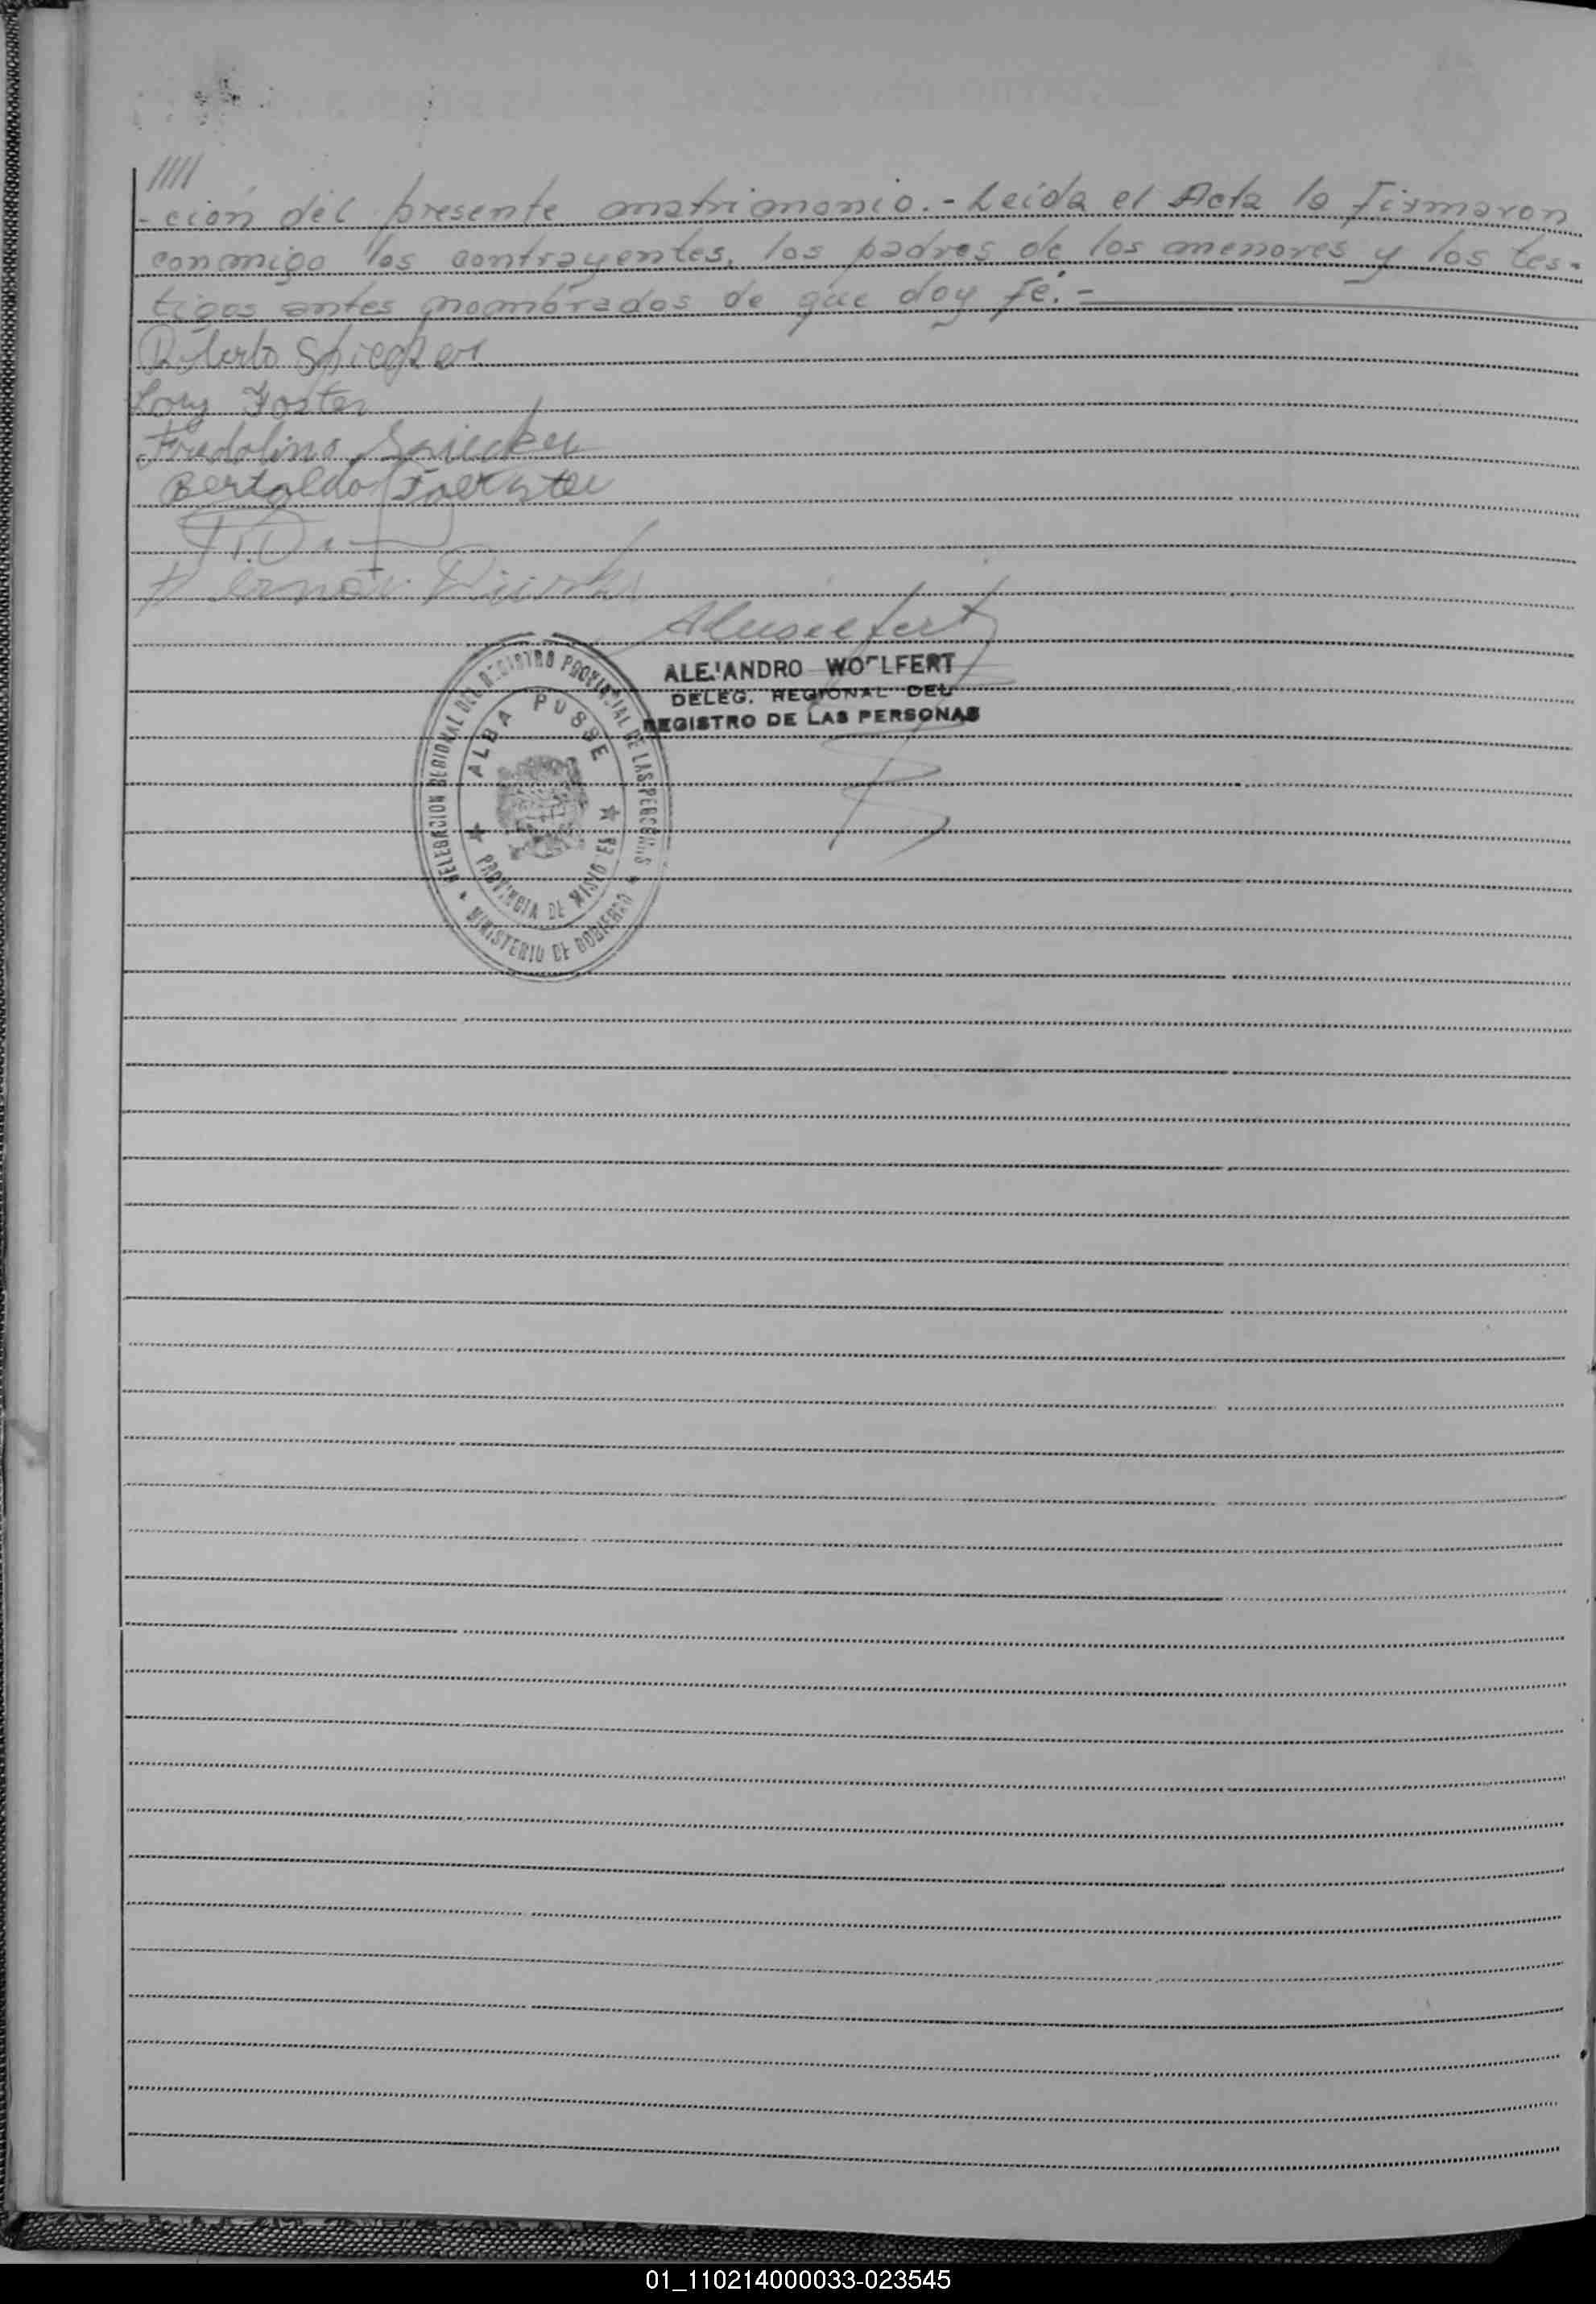 ////
-ción del presente matrimonio.- Leída el Acta la firmaron
conmigo los contrayentes, los padres de los menores y los tes-
tigos antes nombrados de que doy fé.-
Roberto Spiecker
Lory Foster
Fredolino Spiecker
Bertoldo Foerster
ALEJANDRO WOELFERT
DELEG. REGIONAL DEL
REGISTRO DE LAS PERSONAS
DELEGACION REGIONAL DEL REGISTRO PROVINCIAL DE LAS PERSONAS
MINISTERIO DE GOBIERNO
ALBA POSSE
PROVINCIA DE MISIONES
01_110214000033-023545